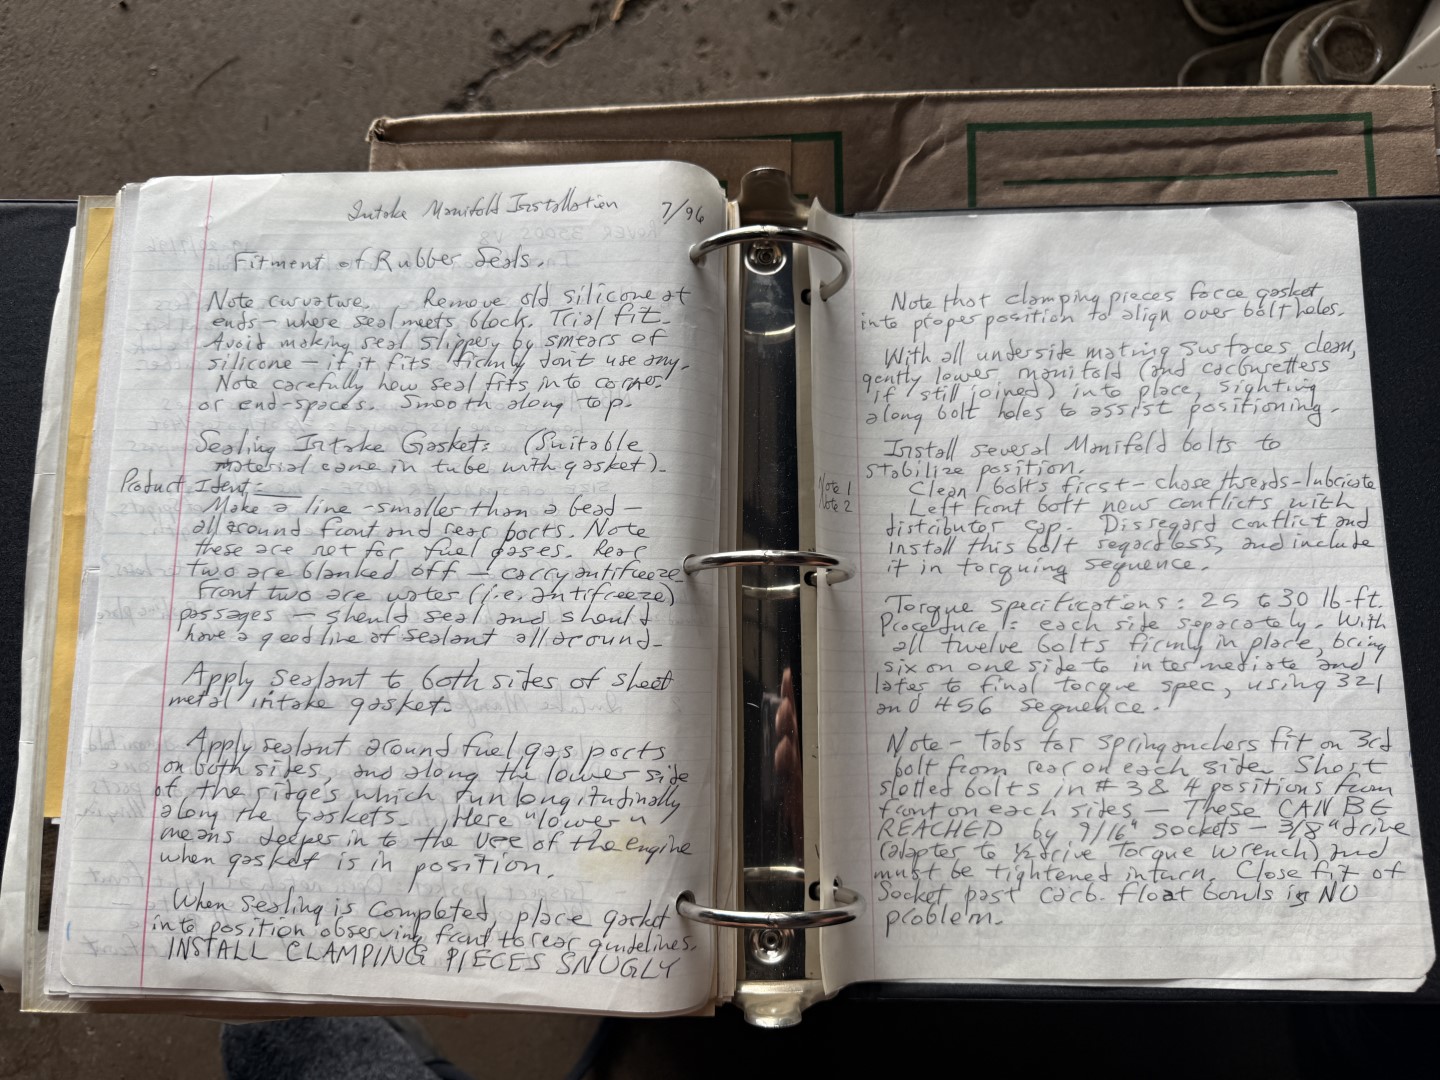 Intake Manifold Installation 7/96
Fitment of Rubber Seals.
Note curvature. Remove old silicone at
ends – where seal meets block. Trial fit.
Avoid making seal slippery by smears of
silicone – if it fits firmly dont use any.
Note carefully how seal fits into corner
or end-spaces. Smooth along top.
Sealing Intake Gasket: (Suitable
material came in tube with gasket).
Product Ident:
Make a line – smaller than a bead –
all around front and rear ports. Note
these are not for fuel gases. Rear
two are blanked off – carry antifreeze
Front two are water (i.e. antifreeze)
passages – should seal and should
have a good line of sealant all around.
Apply sealant to both sides of sheet
metal intake gasket.
Apply sealant around fuel gas ports
on both sides, and along the lower side
of the ridges which run longitudinally
along the gaskets. Here "lower"
means deeper in to the Vee of the engine
when gasket is in position.
When sealing is completed, place gasket
into position observing front to rear guidelines.
INSTALL CLAMPING PIECES SNUGLY
Note that clamping pieces force gasket
into proper position to align over bolt holes.
With all underside mating surfaces clean,
gently lower manifold (and carburetters
if still joined) into place, sighting
along bolt holes to assist positioning.
Install several Manifold bolts to
stabilize position.
Note 1 Clean bolts first – chase threads – lubricate
Note 2 Left front bolt now conflicts with
distributor cap. Disregard conflict and
install this bolt regardless, and include
it in torquing sequence.
Torque specifications: 25 to 30 lb-ft.
Procedure: each side separately. With
all twelve bolts firmly in place, bring
six on one side to intermediate and
later to final torque spec, using 321
and 456 sequence.
Note – Tabs for spring anchors fit on 3rd
bolt from rear on each side. Short
slotted bolts in # 3 & 4 positions from
front on each sides – These CAN BE
REACHED by 9/16" sockets – 3/8" drive
(adapter to 1/2 drive torque wrench) and
must be tightened in turn. Close fit of
Socket past carb. float bowls is NO
problem.